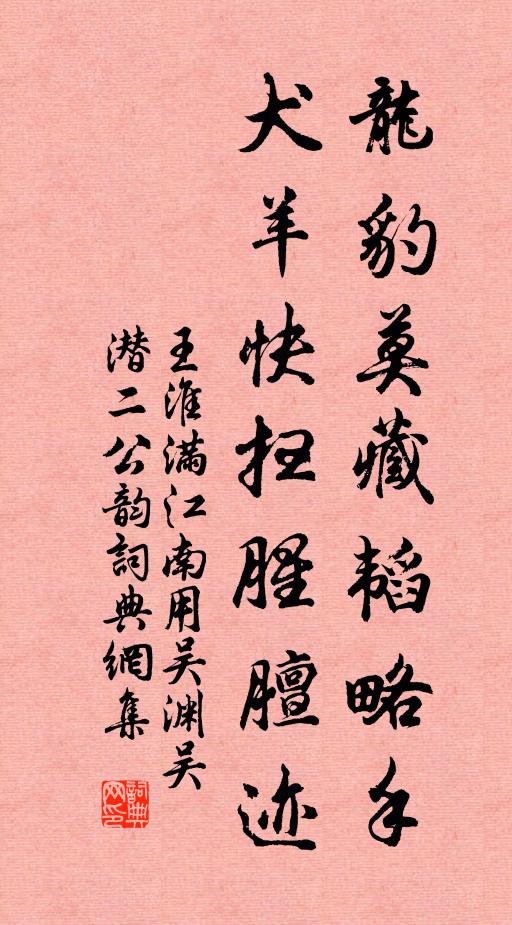 龍豹莫藏韜略手
犬羊快扫腥膻迹
王淮满江南用吴渊吴
潜二公韵詞典網集
詞典网印